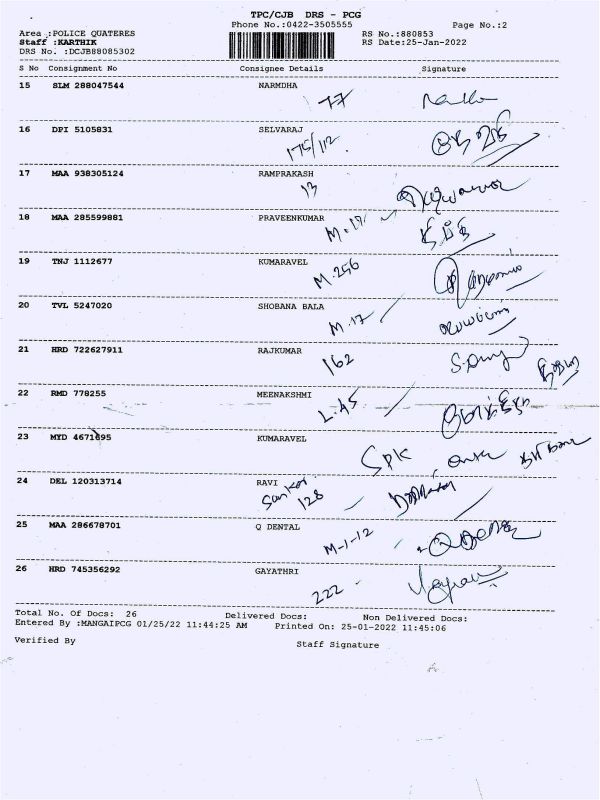 TPC/CJB DRS - PCG
Phone No.:0422-3505555 Page No.:2
Area :POLICE QUATERES RS No.:880853
Staff :KARTHIK RS Date:25-Jan-2022
DRS No. :DCJB88085302
S No Consignment No Consignee Details Signature
15 SLM 288047544 NARMDHA
77
16 DPI 5105831 SELVARAJ
175/112
17 MAA 938305124 RAMPRAKASH
13
18 MAA 285599881 PRAVEENKUMAR
M.17
19 TNJ 1112677 KUMARAVEL
M.256
20 TVL 5247020 SHOBANA BALA
M.17
21 HRD 722627911 RAJKUMAR
162
22 RMD 778255 MEENAKSHMI
L.45
23 MYD 4671695 KUMARAVEL
SPK
24 DEL 120313714 RAVI
128
25 MAA 286678701 Q DENTAL
M-1-12
26 HRD 745356292 GAYATHRI
222
Total No. Of Docs: 26 Delivered Docs: Non Delivered Docs:
Entered By :MANGAIPCG 01/25/22 11:44:25 AM Printed On: 25-01-2022 11:45:06
Verified By Staff Signature